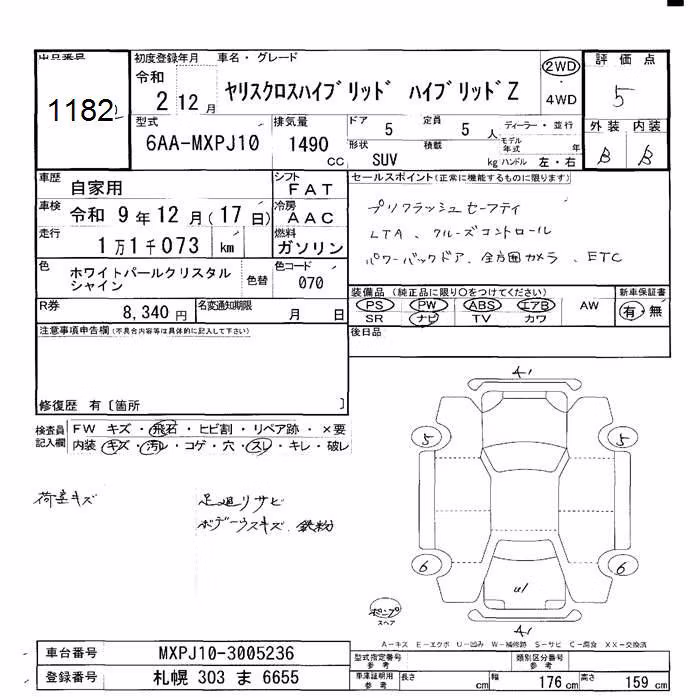 出品番号
1182
初度登録年月 車名・グレード
令和 2 年 12 月 ヤリスクロスハイブリッド ハイブリッドZ
2WD
・
4WD
評価点
5
型式 排気量 ドア 5 定員 5 人 ディーラー・並行
6AA-MXPJ10 1490 cc
形状 SUV 積載 kg
モデル年式 年
ハンドル 左・右
外装 内装
B B
車歴 自家用
シフト FAT
車検 令和 9 年 12 月 (17 日)
冷房 AAC
走行 1万1千073 km
燃料 ガソリン
色 ホワイトパールクリスタルシャイン 色替
色コード 070
R券 8,340 円
名変通知期限 月 日
セールスポイント(正常に機能するものに限ります)
プリクラッシュセーフティ
LTA、クルーズコントロール
パワーバックドア、全方囲カメラ、ETC
装備品(純正品に限り○をつけてください)
PS PW ABS エアB AW
SR ナビ TV カワ
新車保証書
有・無
後日品
注意事項申告欄(不具合内容等は具体的に記入して下さい)
修復歴 有〔箇所 〕
検査員記入欄
FW キズ・飛石・ヒビ割・リペア跡・×要
内装 キズ・汚レ・コゲ・穴・スレ・キレ・破レ
荷室キズ
足廻リサビ
ボデーウスキズ、鉄粉
A1
5 5
6 6
U1
ポンプ
スペア
A1
A-キズ E-エクボ U-凹み W-補修跡 S-サビ C-腐食 XX-交換済
車台番号 MXPJ10-3005236
登録番号 札幌 303 ま 6655
型式指定番号 参考
類別区分番号 参考
車庫証明用 参考
長さ cm 幅 176 cm 高さ 159 cm